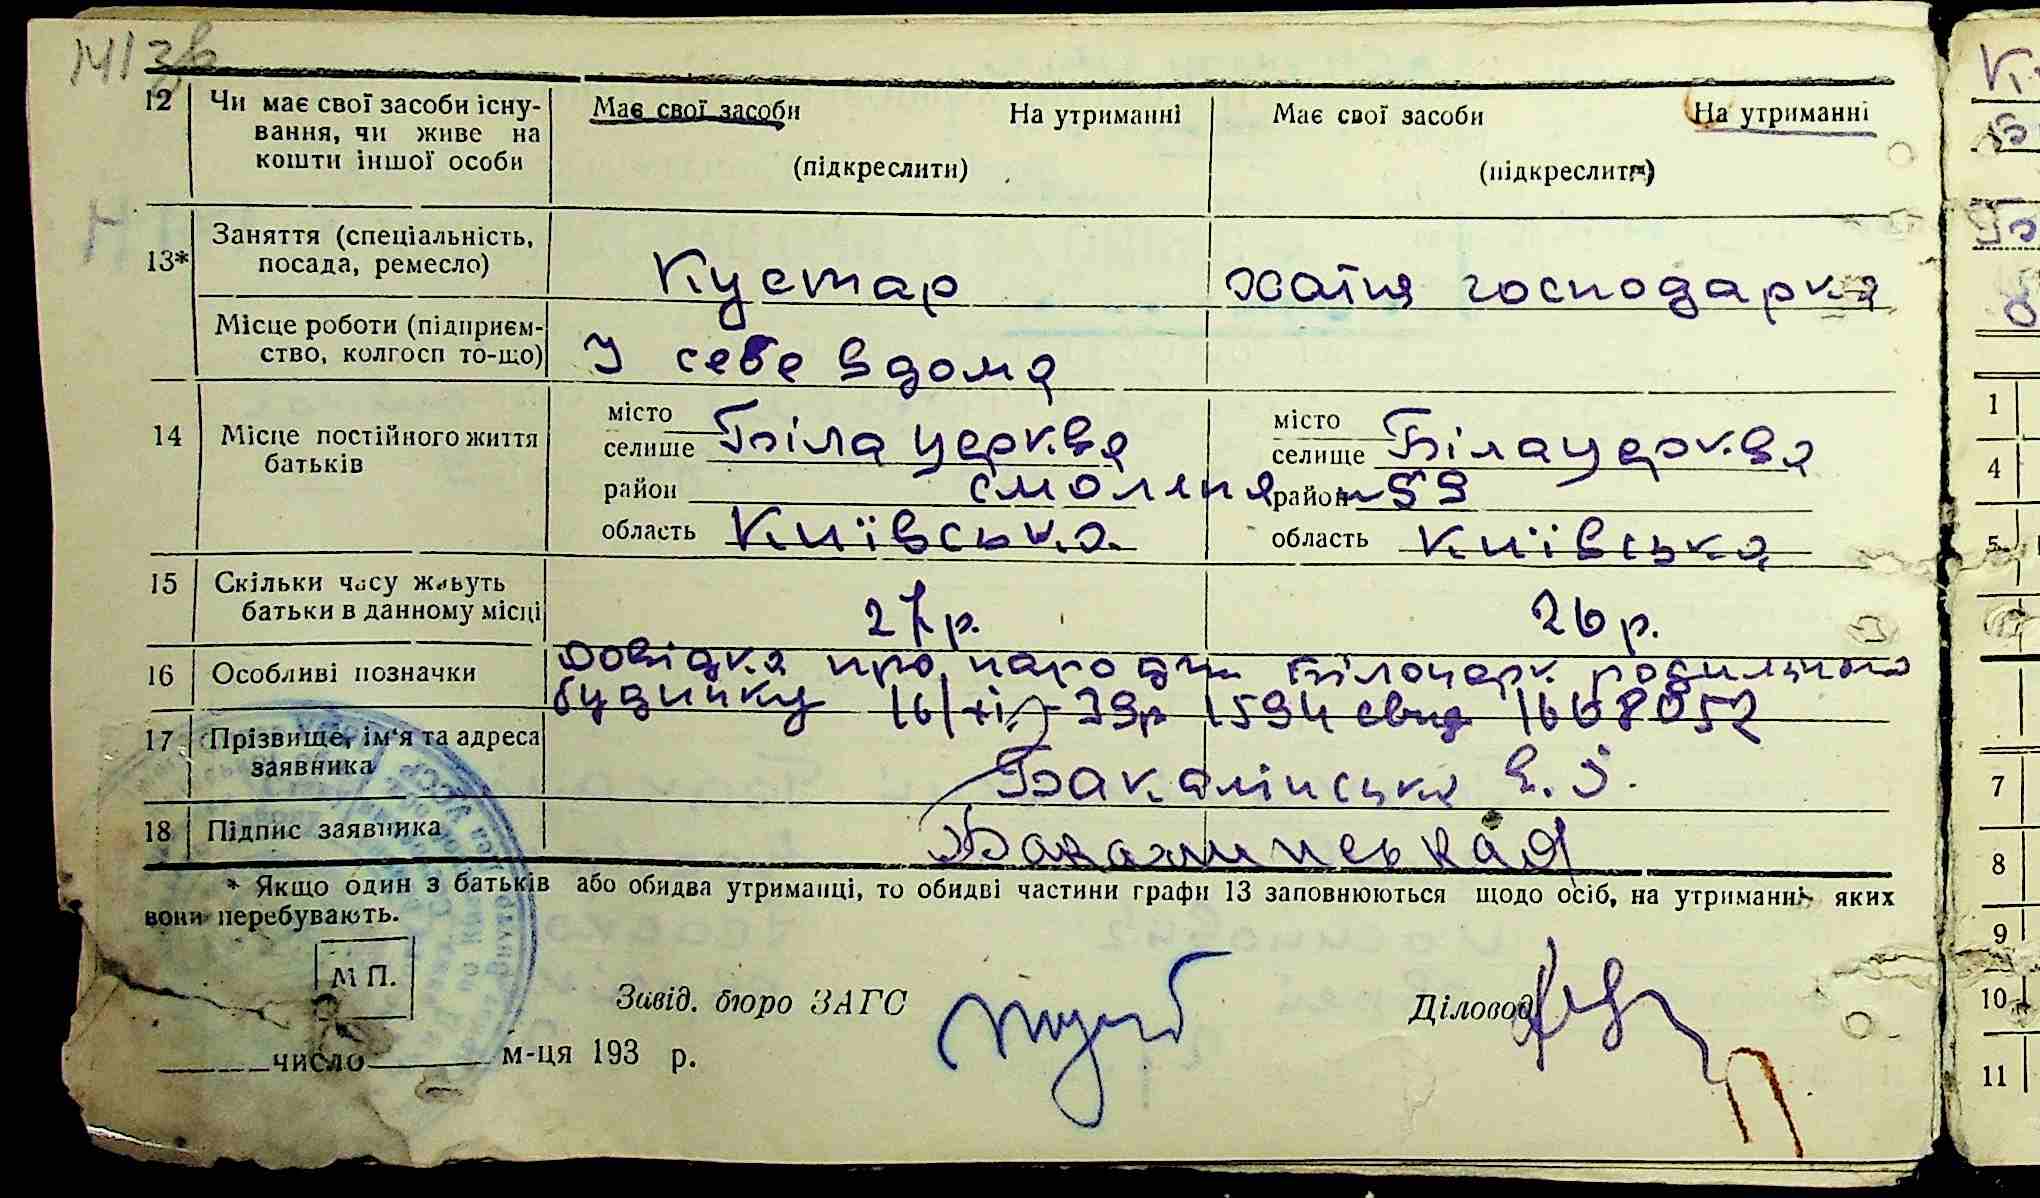 12 Чи має свої засоби існу- Має свої засоби На утриманні Має свої засоби На утриманні
вання, чи живе на
кошти іншої особи (підкреслити) (підкреслити)
Заняття (спеціальність,
13* посада, ремесло) Кустар хатня господарка
Місце роботи (підприєм-
ство, колгосп то-що) У себе вдома
місто місто
14 Місце постійного життя селище Біла церква селище Біла церква
батьків
район Смоляна район 59
область Київська область Київська
15 Скільки часу живуть
батьки в данному місці 27 р. 26 р.
Довідка про народж Білоцерк родильного
16 Особливі позначки
будинку 16/XI-39р 1594 свид 1668052
17 Прізвище, ім'я та адреса
заявника Бакалінська Є. Й.
18 Підпис заявника
* Якщо один з батьків або обидва утриманці, то обидві частини графи 13 заповнюються щодо осіб, на утриманні яких
вони перебувають.
М П.
Завід. бюро ЗАГС Діловод
число м-ця 193 р.
1
4
5
7
8
9
10
11